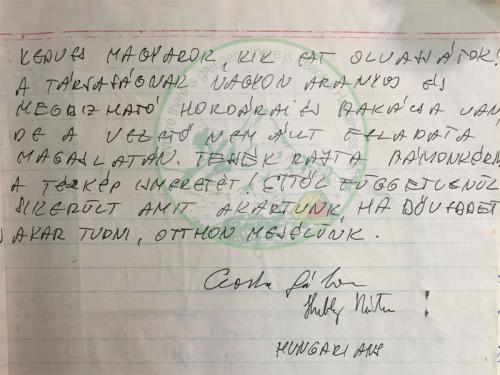 KEDVES MAGYAROK, KIK EZT OLVASSÁTOK!
A TÁRSASÁGNAK NAGYON ARANYOS ÉS
MEGBIZHATÓ HORDÁRAI ÉS SZAKÁCSA VAN
DE A VEZETŐ NEM ÁLLT FELADATA
MAGASLATÁN. TEHÁT RAJTA SZÁMONKÉRNI
A TÉRKÉP ISMERETÉT! ETTŐL FÜGGETLENÜL
SIKERÜLT AMIT AKARTUNK, HA BŐVEBBET
AKAR TUDNI, OTTHON MESÉLÜNK.
HUNGARIANS